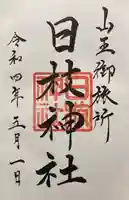 山王御旅所
日枝神社
令和四年五月一日